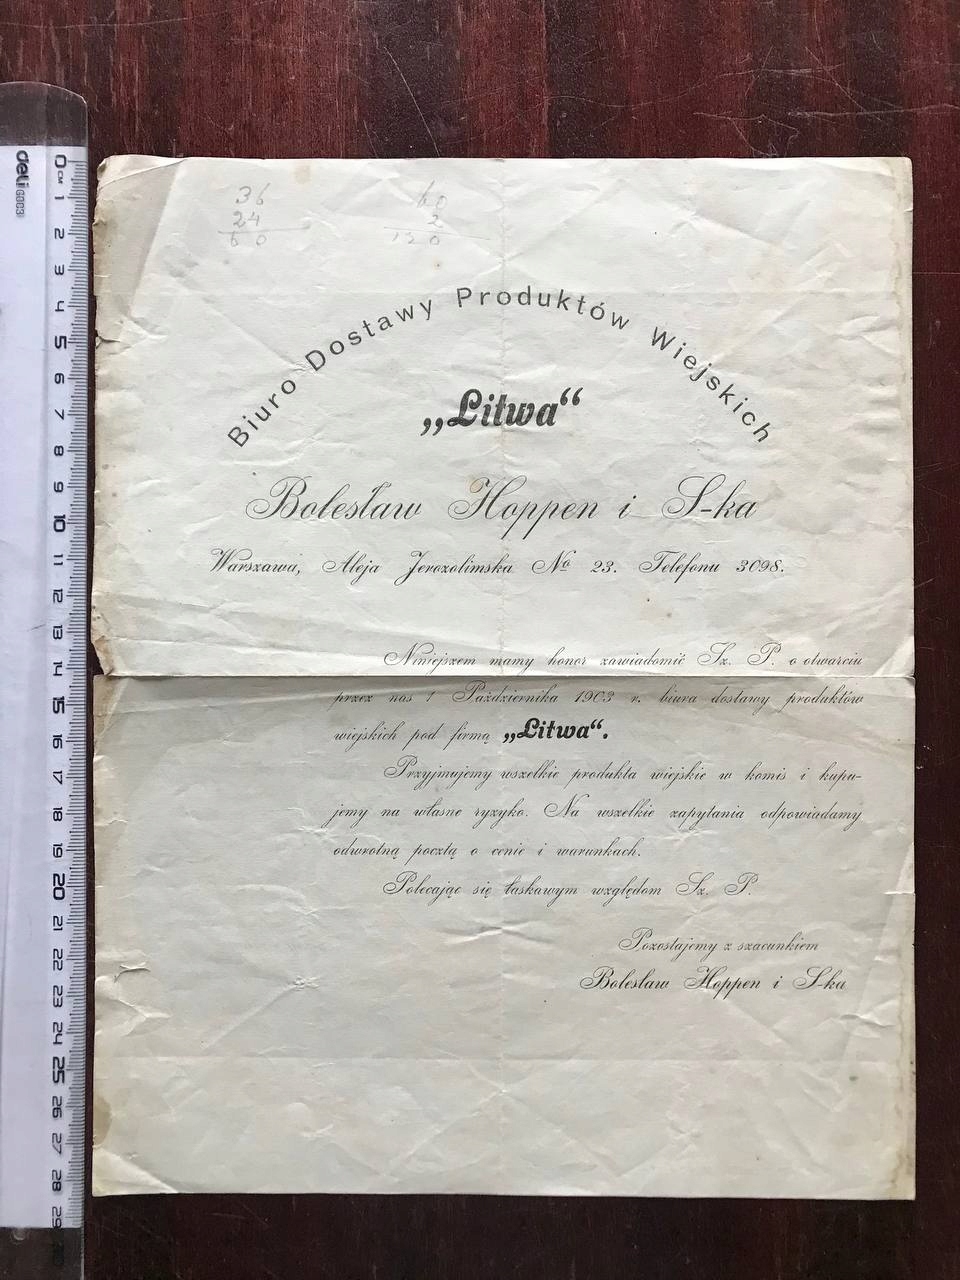 deli
6003
0 CM 1 2 3 4 5 6 7 8 9 10 11 12 13 14 15 16 17 18 19 20 21 22 23 24 25 26 27 28 29 30
36 60
24 2
60 120
Biuro Dostawy Produktów Wiejskich
„Litwa“
Bolesław Hoppen i S-ka
Warszawa, Aleja Jerozolimska № 23. Telefonu 3098.
Niniejszem mamy honor zawiadomić Sz. P. o otwarciu
przez nas 1 Października 1903 r. biura dostawy produktów
wiejskich pod firmą „Litwa“.
Przyjmujemy wszelkie produkta wiejskie w komis i kupu-
jemy na własne ryzyko. Na wszelkie zapytania odpowiadamy
odwrotną pocztą o cenie i warunkach.
Polecając się łaskawym względom Sz. P.
Pozostajemy z szacunkiem
Bolesław Hoppen i S-ka